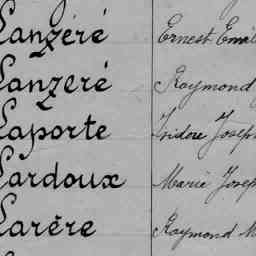 Lanzéré Ernest Emil
Lanzeré Raymond
Laporte Isidore Joseph
Lardoux Marie Josep
Larère Raymond M